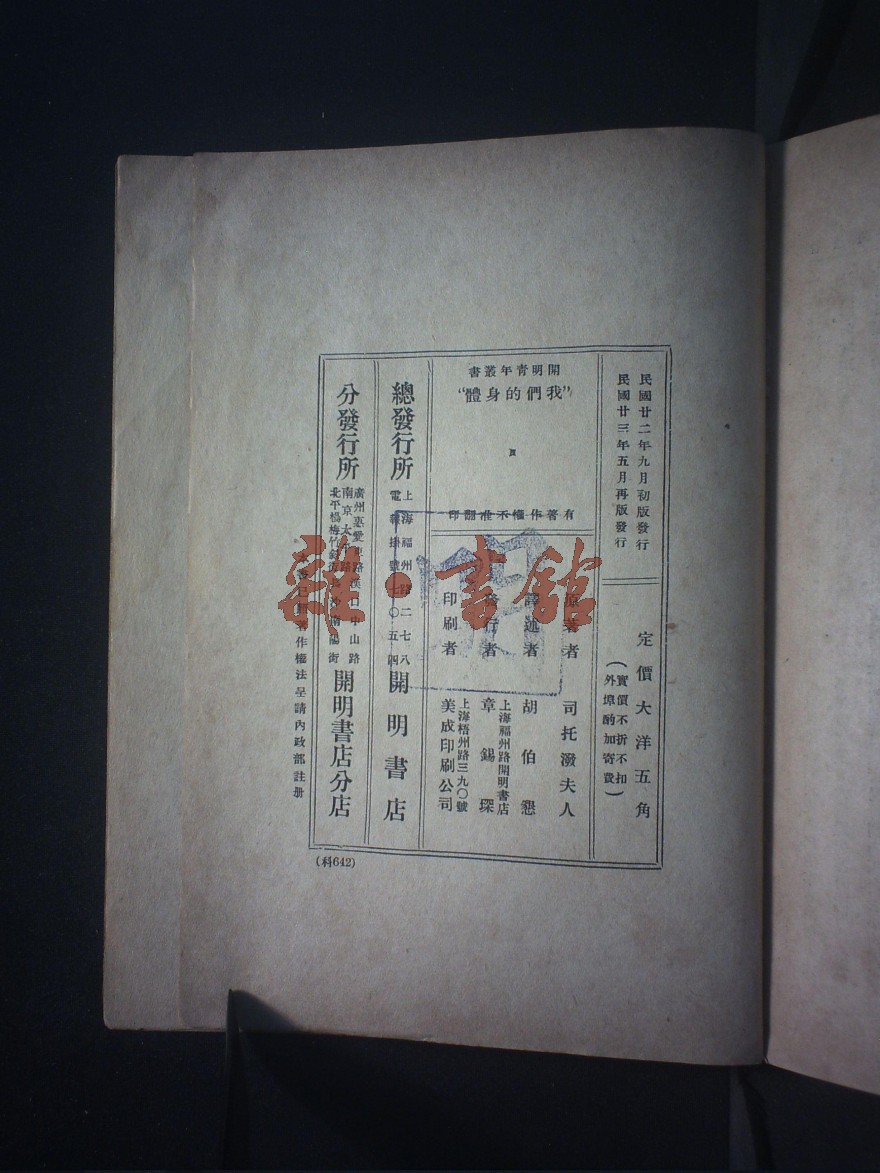 民國廿二年九月初版發行
民國廿三年五月再版發行
定價大洋五角
(實價不折不扣
外埠酌加寄費)
開明青年叢書
“我們的身體”
有著作權不准翻印
原著者 司托潑夫人
譯述者 胡伯懇
發行者 章錫琛
上海福州路開明書店
印刷者 美成印刷公司
上海梧州路三九〇號
總發行所 上海福州路二七八 開明書店
電報掛號七〇五四
分發行所 開明書店分店
廣州惠愛東路漢口中山路
南京太平路
北平楊梅竹斜街
本書已照著作權法呈請內政部註册
(科642)
雜·書館